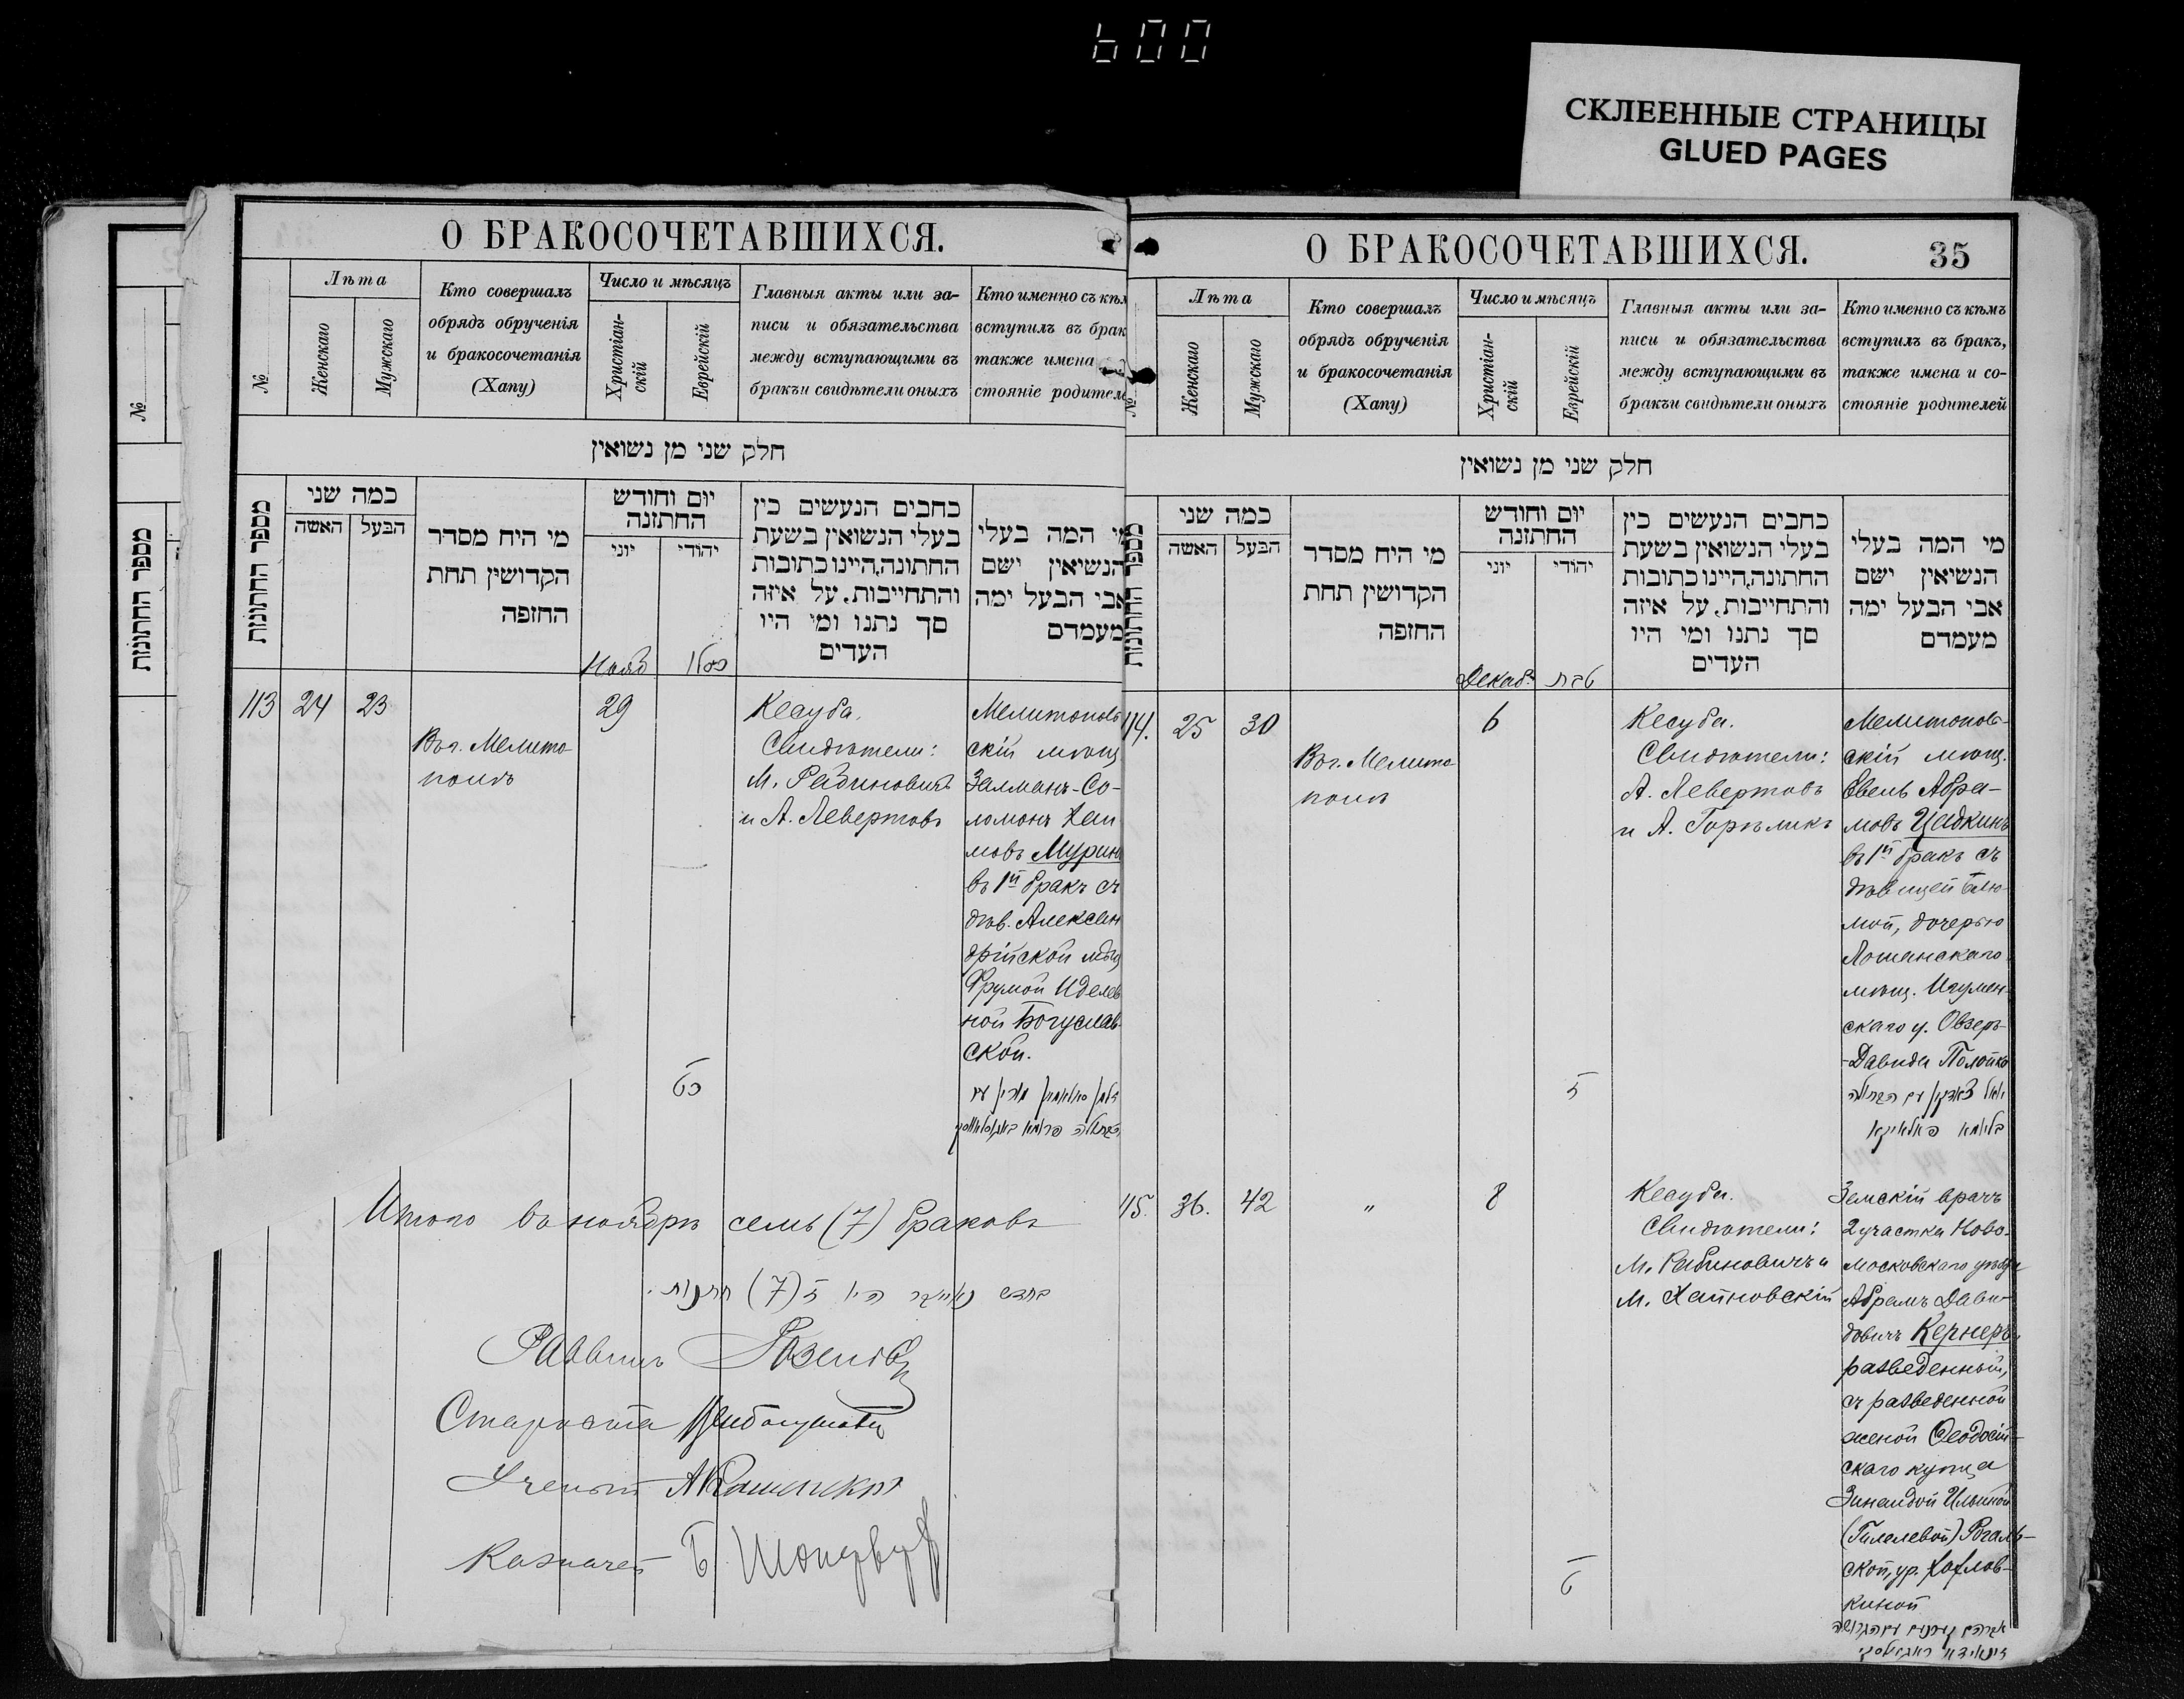 600
СКЛЕЕННЫЕ СТРАНИЦЫ
GLUED PAGES
№
מספר החתונות
О БРАКОСОЧЕТАВШИХСЯ.
№
Лѣта
Женскаго
Мужскаго
Кто совершалъ
обрядъ обрученія
и бракосочетанія
(Хапу)
Число и мѣсяцъ
Христіан-
скій
Еврейскій
Главныя акты или за-
писи и обязательства
между вступающими въ
бракъи свидѣтели оныхъ
Кто именно съ кѣм
вступилъ въ брак
также имена
стояніе родителе
חלק שני מן נשואין
מספר החתונות
כמה שני
האשה
הבעל
מי היח מסדר
הקדושין תחת
החזפה
יום וחודש
החתזנה
יוני
יהודי
כחבים הנעשים כין
בעלי הנשואין בשעת
החתונה,היינו כתובות
והתחייבות, על איזה
סך נתנו ומי היו
העדים
מי המה בעלי
הנשיאין ישם
אבי הבעל ימה
מעמדם
Нояб
כסלו
113
24
23
Въ г. Мелито
полѣ
29
כט
Кесуба.
Свидѣтели:
М. Рабиновичъ
и А. Левертовъ
Мелитополь
скій мѣщ
Залманъ-Со-
ломонъ Хаи
мовъ Муринъ
въ 1й бракъ съ
дѣв. Алексан
дрійской мѣщ
Фрумой Иделев
ной Богуслав
ской.
Итого въ ноябрѣ семь (7) браковъ
בחדש נאיאבר היו ז (7) חתנות.
Раввинъ
Староста
Ученый
Казначей Б
О БРАКОСОЧЕТАВШИХСЯ.
35
№
Лѣта
Женскаго
Мужскаго
Кто совершалъ
обрядъ обрученія
и бракосочетанія
(Хапу)
Число и мѣсяцъ
Христіан-
скій
Еврейскій
Главныя акты или за-
писи и обязательства
между вступающими въ
бракъи свидѣтели оныхъ
Кто именно съ кѣмъ
вступилъ въ бракъ,
также имена и со-
стояніе родителей
חלק שני מן נשואין
מספר החתונות
כמה שני
האשה
הבעל
מי היח מסדר
הקדושין תחת
החזפה
יום וחודש
החתזנה
יוני
יהודי
כחבים הנעשים כין
בעלי הנשואין בשעת
החתונה,היינו כתובות
והתחייבות, על איזה
סך נתנו ומי היו
העדים
מי המה בעלי
הנשיאין ישם
אבי הבעל ימה
מעמדם
Декаб.
טבת
114.
25
30
Въ г. Мелито
полѣ
6
ז
Кесуба.
Свидѣтели:
А. Левертовъ
и А. Горѣликъ
Мелитополь-
скій мѣщ.
Евель Абра-
мовъ Цадкинъ
въ 1й бракъ съ
дѣвицей Блю-
мой, дочерью
Лошанскаго
мѣщ. Игумен-
скаго у. Овзеръ-
-Давида Полойко
115.
36.
42
"
8
ט
Кесуба.
Свидѣтели:
М. Рабиновичъ и
М. Хайновскій
Земскій врачъ
2 участка Ново-
московскаго уѣзда
Абрамъ Дави-
довичъ Кернеръ
разведенный,
съ разведенной
женой Ѳеодосій-
скаго купца
Зинаидой Ильиной
(Гилелевой) Рогаль-
ской, ур.
киной